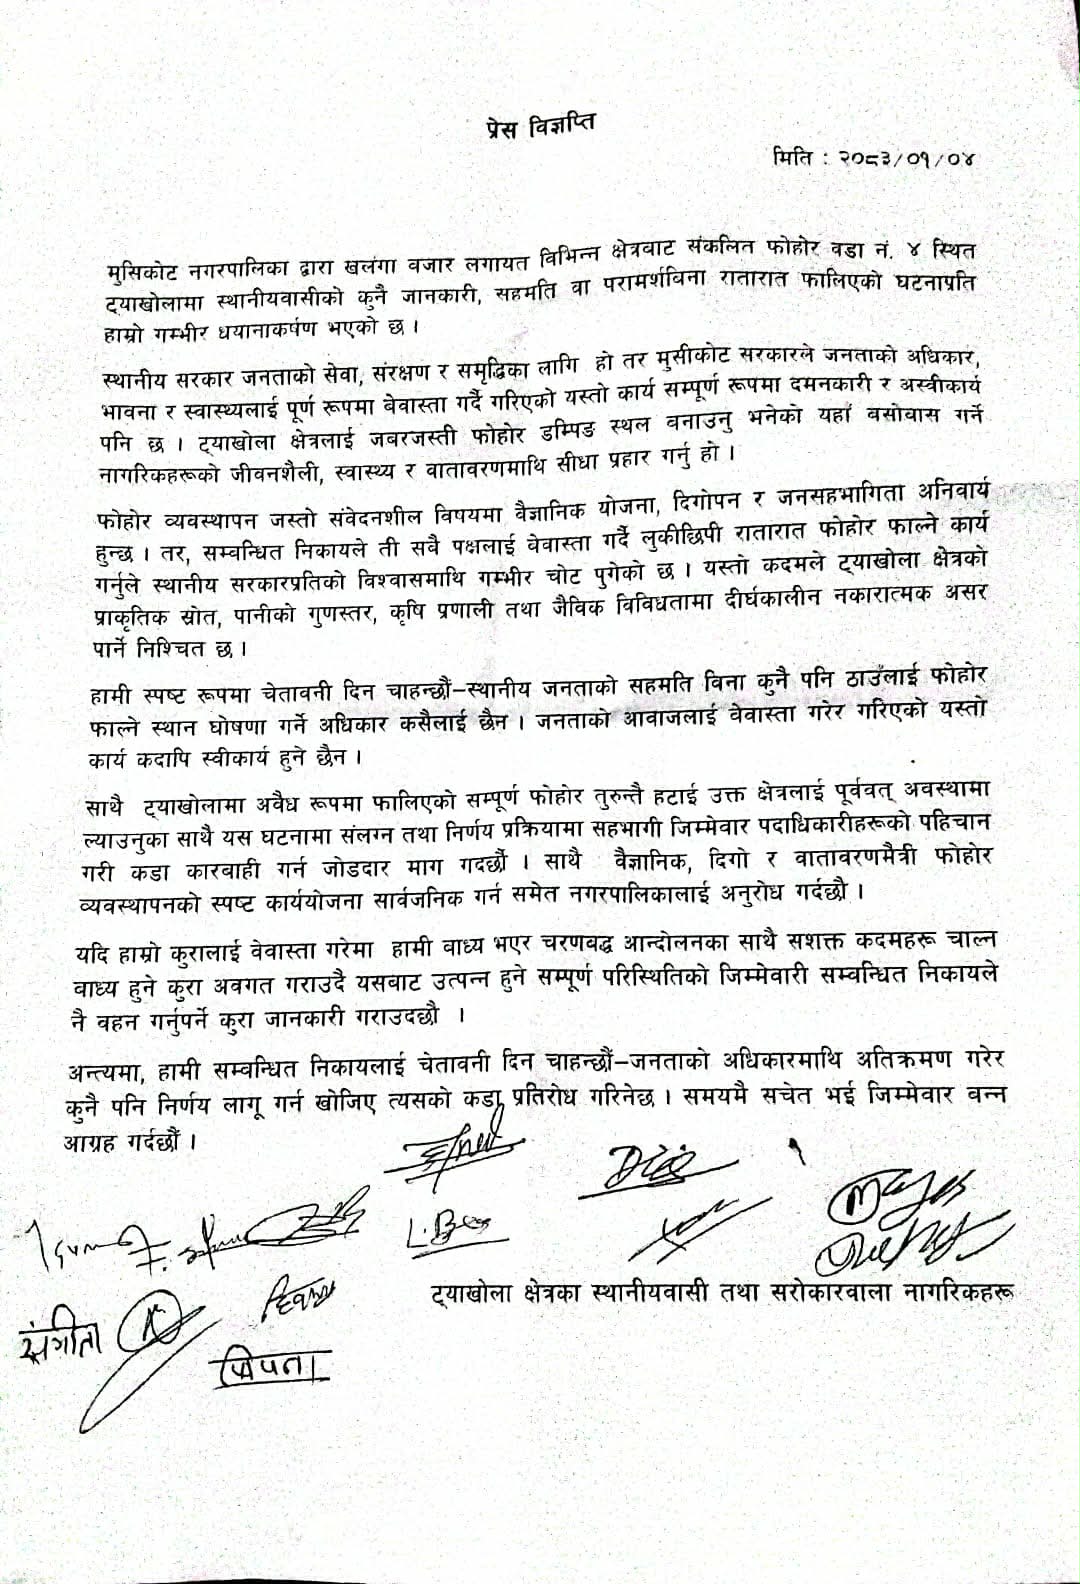 प्रेस विज्ञप्ति
मिति : २०८३/०१/०४
मुसिकोट नगरपालिका द्वारा खलंगा वजार लगायत विभिन्न क्षेत्रबाट संकलित फोहोर वडा नं. ४ स्थित
ट्याखोलामा स्थानीयवासीको कुनै जानकारी, सहमति वा परामर्शविना रातारात फालिएको घटनाप्रति
हाम्रो गम्भीर धयानाकर्षण भएको छ ।
स्थानीय सरकार जनताको सेवा, संरक्षण र समृद्धिका लागि हो तर मुसीकोट सरकारले जनताको अधिकार,
भावना र स्वास्थ्यलाई पूर्ण रूपमा बेवास्ता गर्दै गरिएको यस्तो कार्य सम्पूर्ण रूपमा दमनकारी र अस्वीकार्य
पनि छ । ट्याखोला क्षेत्रलाई जबरजस्ती फोहोर डम्पिङ स्थल वनाउनु भनेको यहाँ बसोवास गर्ने
नागरिकहरूको जीवनशैली, स्वास्थ्य र वातावरणमाथि सीधा प्रहार गर्नु हो ।
फोहोर व्यवस्थापन जस्तो संवेदनशील विषयमा वैज्ञानिक योजना, दिगोपन र जनसहभागिता अनिवार्य
हुन्छ । तर, सम्वन्धित निकायले ती सवै पक्षलाई वेवास्ता गर्दै लुकीछिपी रातारात फोहोर फाल्ने कार्य
गर्नुले स्थानीय सरकारप्रतिको विश्वासमाथि गम्भीर चोट पुगेको छ । यस्तो कदमले ट्याखोला क्षेत्रको
प्राकृतिक स्रोत, पानीको गुणस्तर, कृषि प्रणाली तथा जैविक विविधतामा दीर्घकालीन नकारात्मक असर
पार्ने निश्चित छ ।
हामी स्पष्ट रूपमा चेतावनी दिन चाहन्छौं–स्थानीय जनताको सहमति विना कुनै पनि ठाउँलाई फोहोर
फाल्ने स्थान घोषणा गर्ने अधिकार कसैलाई छैन । जनताको आवाजलाई वेवास्ता गरेर गरिएको यस्तो
कार्य कदापि स्वीकार्य हुने छैन ।
साथै ट्याखोलामा अवैध रूपमा फालिएको सम्पूर्ण फोहोर तुरुन्तै हटाई उक्त क्षेत्रलाई पूर्ववत् अवस्थामा
ल्याउनुका साथै यस घटनामा संलग्न तथा निर्णय प्रक्रियामा सहभागी जिम्मेवार पदाधिकारीहरूको पहिचान
गरी कडा कारबाही गर्न जोडदार माग गदर्छौ । साथै वैज्ञानिक, दिगो र वातावरणमैत्री फोहोर
व्यवस्थापनको स्पष्ट कार्ययोजना सार्वजनिक गर्न समेत नगरपालिकालाई अनुरोध गर्दछौ ।
यदि हाम्रो कुरालाई वेवास्ता गरेमा हामी वाध्य भएर चरणवद्ध आन्दोलनका साथै सशक्त कदमहरू चाल्न
वाध्य हुने कुरा अवगत गराउदै यसबाट उत्पन्न हुने सम्पूर्ण परिस्थितिको जिम्मेवारी सम्वन्धित निकायले
नै वहन गर्नुपर्ने कुरा जानकारी गराउदछौ ।
अन्त्यमा, हामी सम्वन्धित निकायलाई चेतावनी दिन चाहन्छौं–जनताको अधिकारमाथि अतिक्रमण गरेर
कुनै पनि निर्णय लागू गर्न खोजिए त्यसको कडा प्रतिरोध गरिनेछ । समयमै सचेत भई जिम्मेवार वन्न
आग्रह गर्दछौं ।
ट्याखोला क्षेत्रका स्थानीयवासी तथा सरोकारवाला नागरिकहरू
संगीता